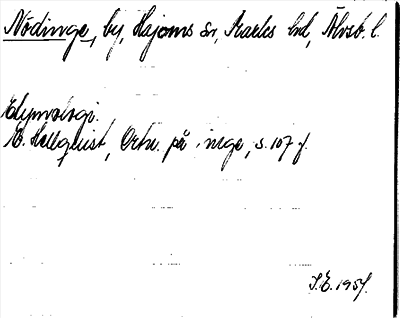 Nödinge, by, Hajoms sn, Marks hd, Älvsb. l.
Etymologi.
E. Hellquist, Ortn. på -inge, s. 107 f.
I.E. 1951.